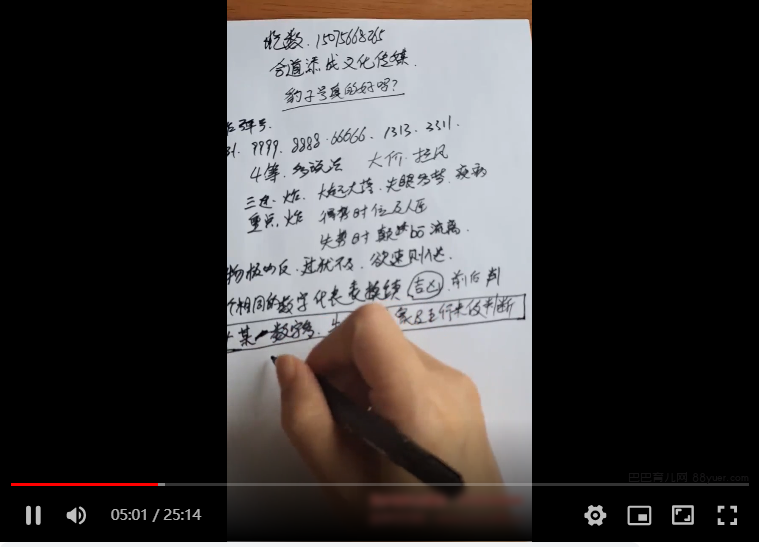 吃数. 15075668265
合道添成文化传媒.
豹子号真的好吗?
弹号.
31. 9999. 8888. 66666. 1313. 3311.
4等. 多说法 大价. 拉风
三连. 炸. 大起大落. 失眠多梦. 疾病
重点. 炸 得势时位及人臣
失势时颠沛 流离.
物极必反. 过犹不及. 欲速则不达.
个相同的数字代表表换续 (吉凶). 前后判
某一数字多. 五行来做判断
巴巴育儿网 88yuer.com
05:01 / 25:14